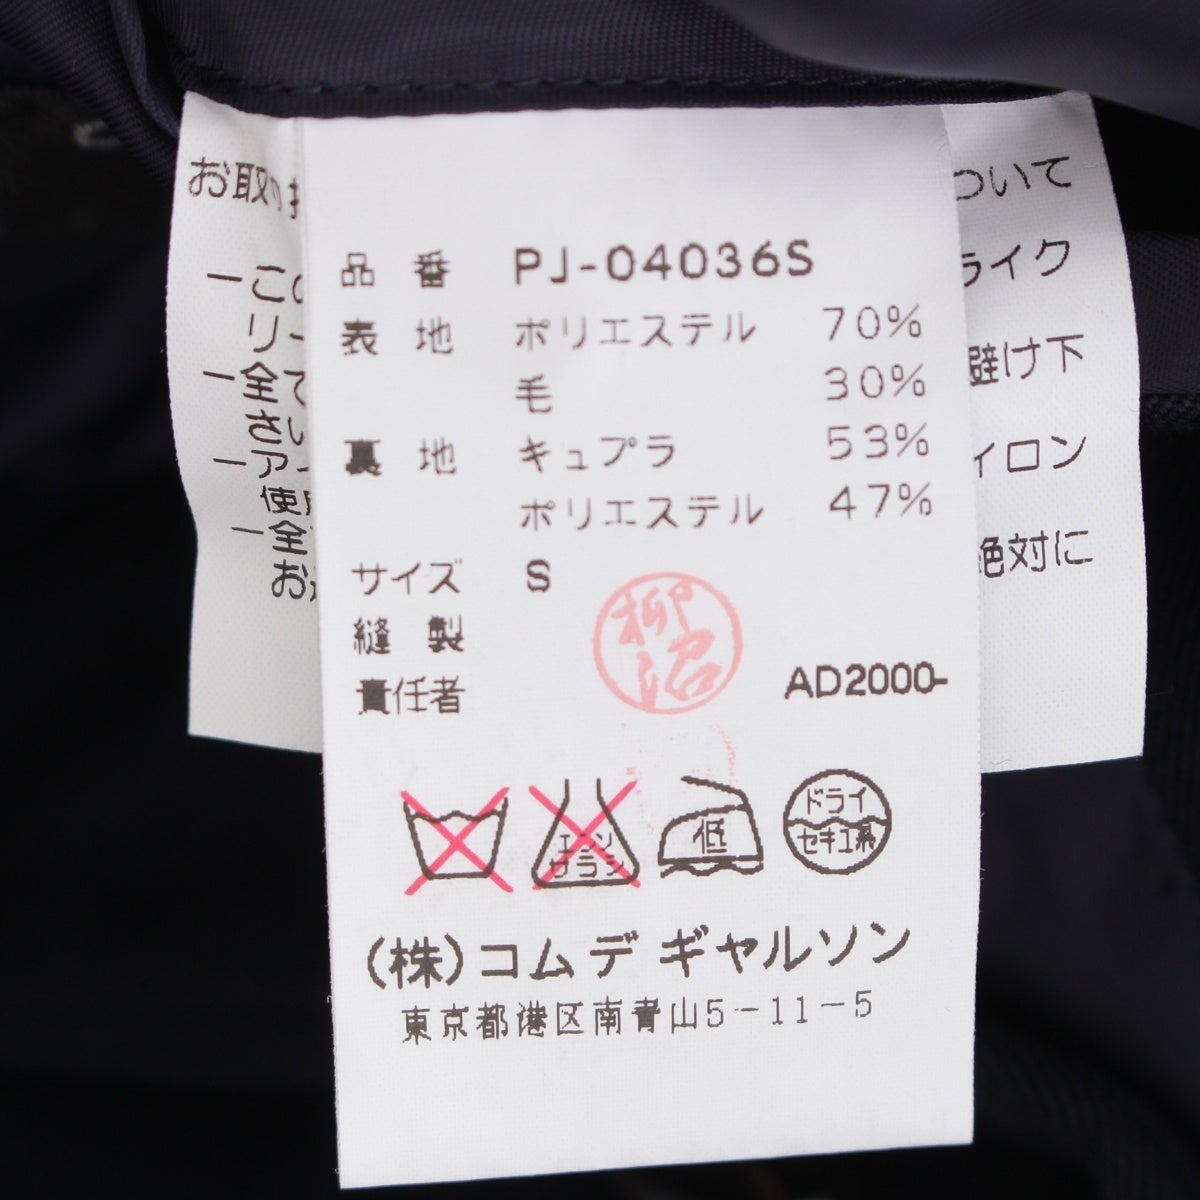 品番 PJ-04036S
表地 ポリエステル 70%
毛 30%
裏地 キュプラ 53%
ポリエステル 47%
サイズ S
縫製
責任者
柳沼
AD2000-
エンソ
サラシ
低
ドライ
セキユ系
(株)コムデギャルソン
東京都港区南青山5-11-5
お取り扱
ついて
ーこの
ライク
リー
ー全て
避け下
さい
ーアイ
イロン
使用
ー全
絶対に
お